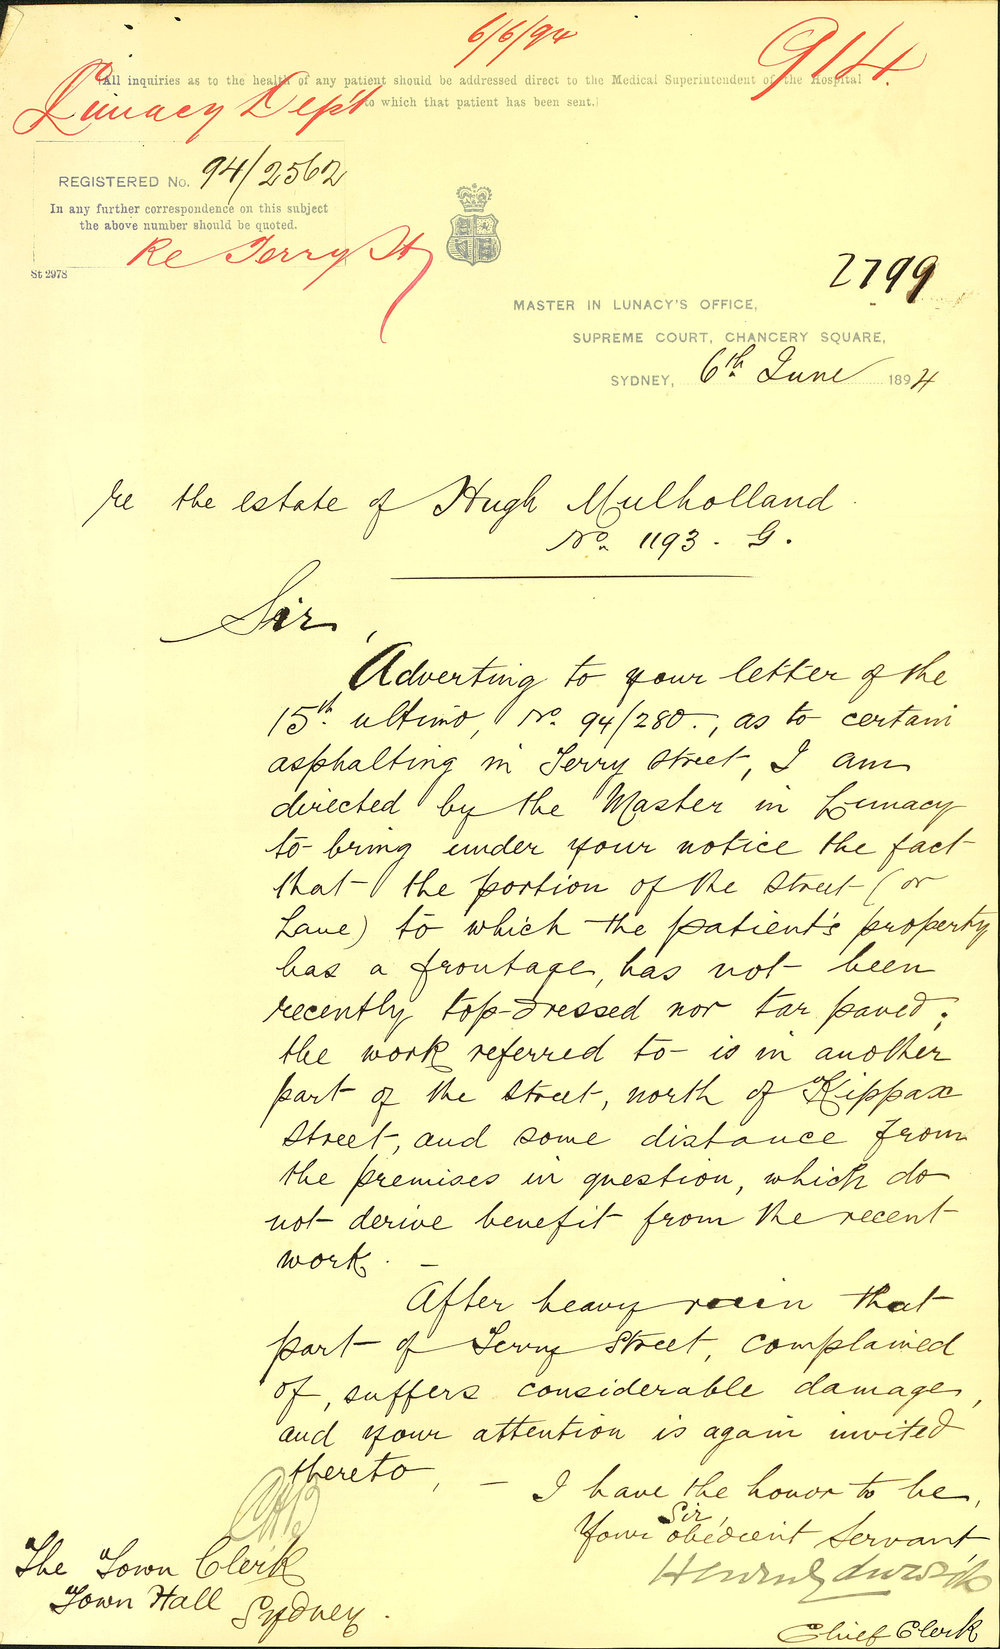 6/6/94
914.
(All inquiries as to the health of any patient should be addressed direct to the Medical Superintendent of the Hospital
to which that patient has been sent.)
Lunacy Dept
REGISTERED No. 94/2562
In any further correspondence on this subject
the above number should be quoted.
Re Terry St
St 2978
2799
MASTER IN LUNACY'S OFFICE,
SUPREME COURT, CHANCERY SQUARE,
SYDNEY, 6th June 1894
re the estate of Hugh Mulholland
No. 1193. G.
Sir,
Adverting to your letter of the
15th ultimo, No. 94/280., as to certain
asphalting in Terry Street, I am
directed by the Master in Lunacy
to bring under your notice the fact
that the portion of the Street (or
Lane) to which the patient's property
has a frontage, has not been
recently top-dressed nor tar paved;
the work referred to is in another
part of the Street, north of Kippax
Street, and some distance from
the premises in question, which do
not derive benefit from the recent
work. —
After heavy rain that
part of Terry Street, complained
of, suffers considerable damage,
and your attention is again invited
thereto, —
I have the honor to be,
Sir,
Your obedient Servant,
Chief Clerk
The Town Clerk
Town Hall
Sydney.